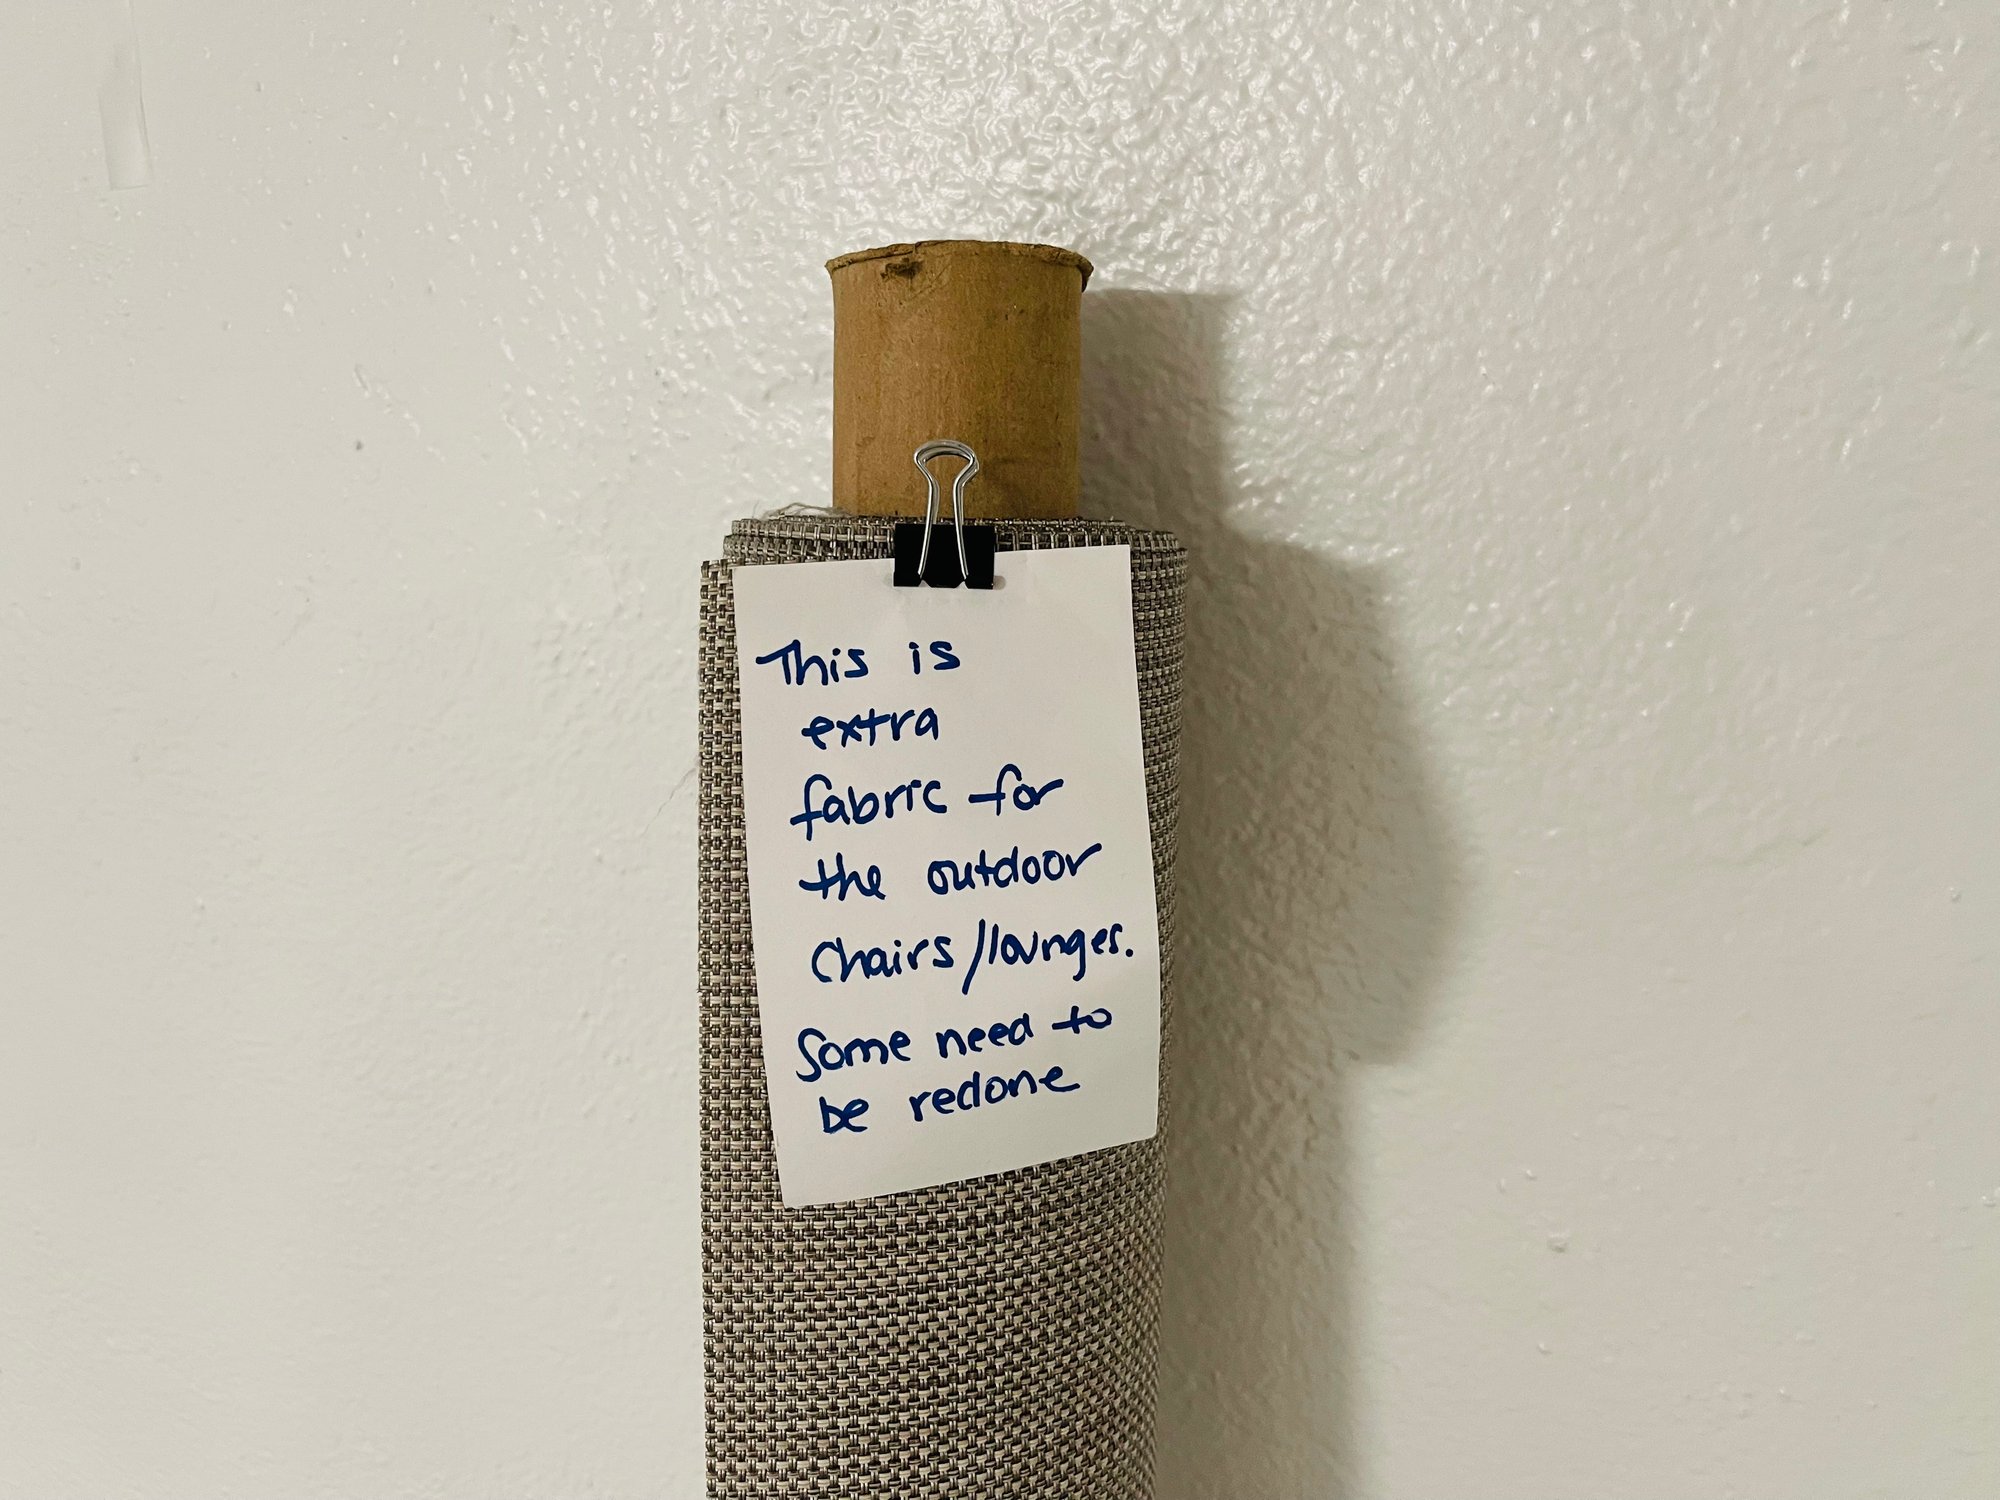 This is
extra
fabric for
the outdoor
chairs/lounges.
Some need to
be redone